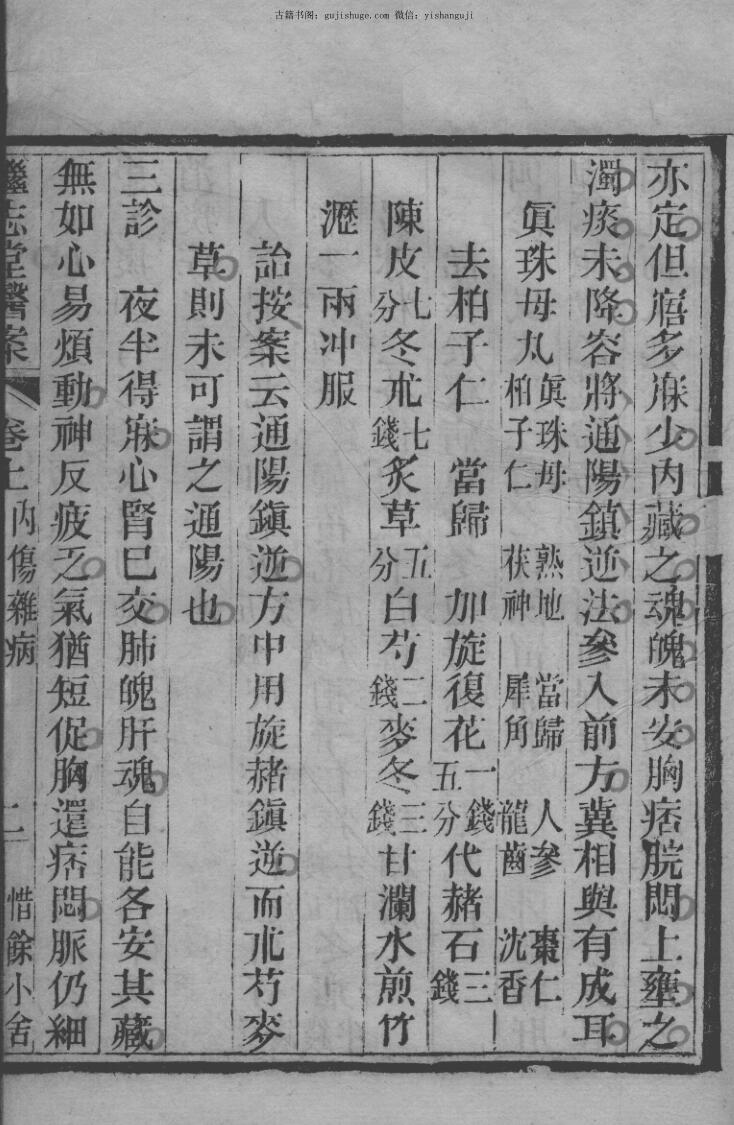 古籍书阁：gujishuge.com 微信：yishanguji
亦定但寤多寐少内藏之魂魄未安胸痞脘悶上壅之
濁痰未降容將通陽鎮逆法參入前方冀相與有成耳
眞珠母丸 眞珠母 熟地 當歸 人參 棗仁 柏子仁 茯神 犀角 龍齒 沈香
去柏子仁 當歸 加旋復花一錢五分代赭石三錢
陳皮七分冬朮七錢炙草五分白芍二錢麥冬三錢甘瀾水煎竹
瀝一兩冲服
詒按案云通陽鎭逆方中用旋赭鎭逆而朮芍麥
草則未可謂之通陽也
三診 夜半得寐心腎巳交肺魄肝魂自能各安其藏
無如心易煩動神反疲乏氣猶短促胸還痞悶脈仍細
繼志堂醫案 卷上 内傷雜病 二 惜餘小舍